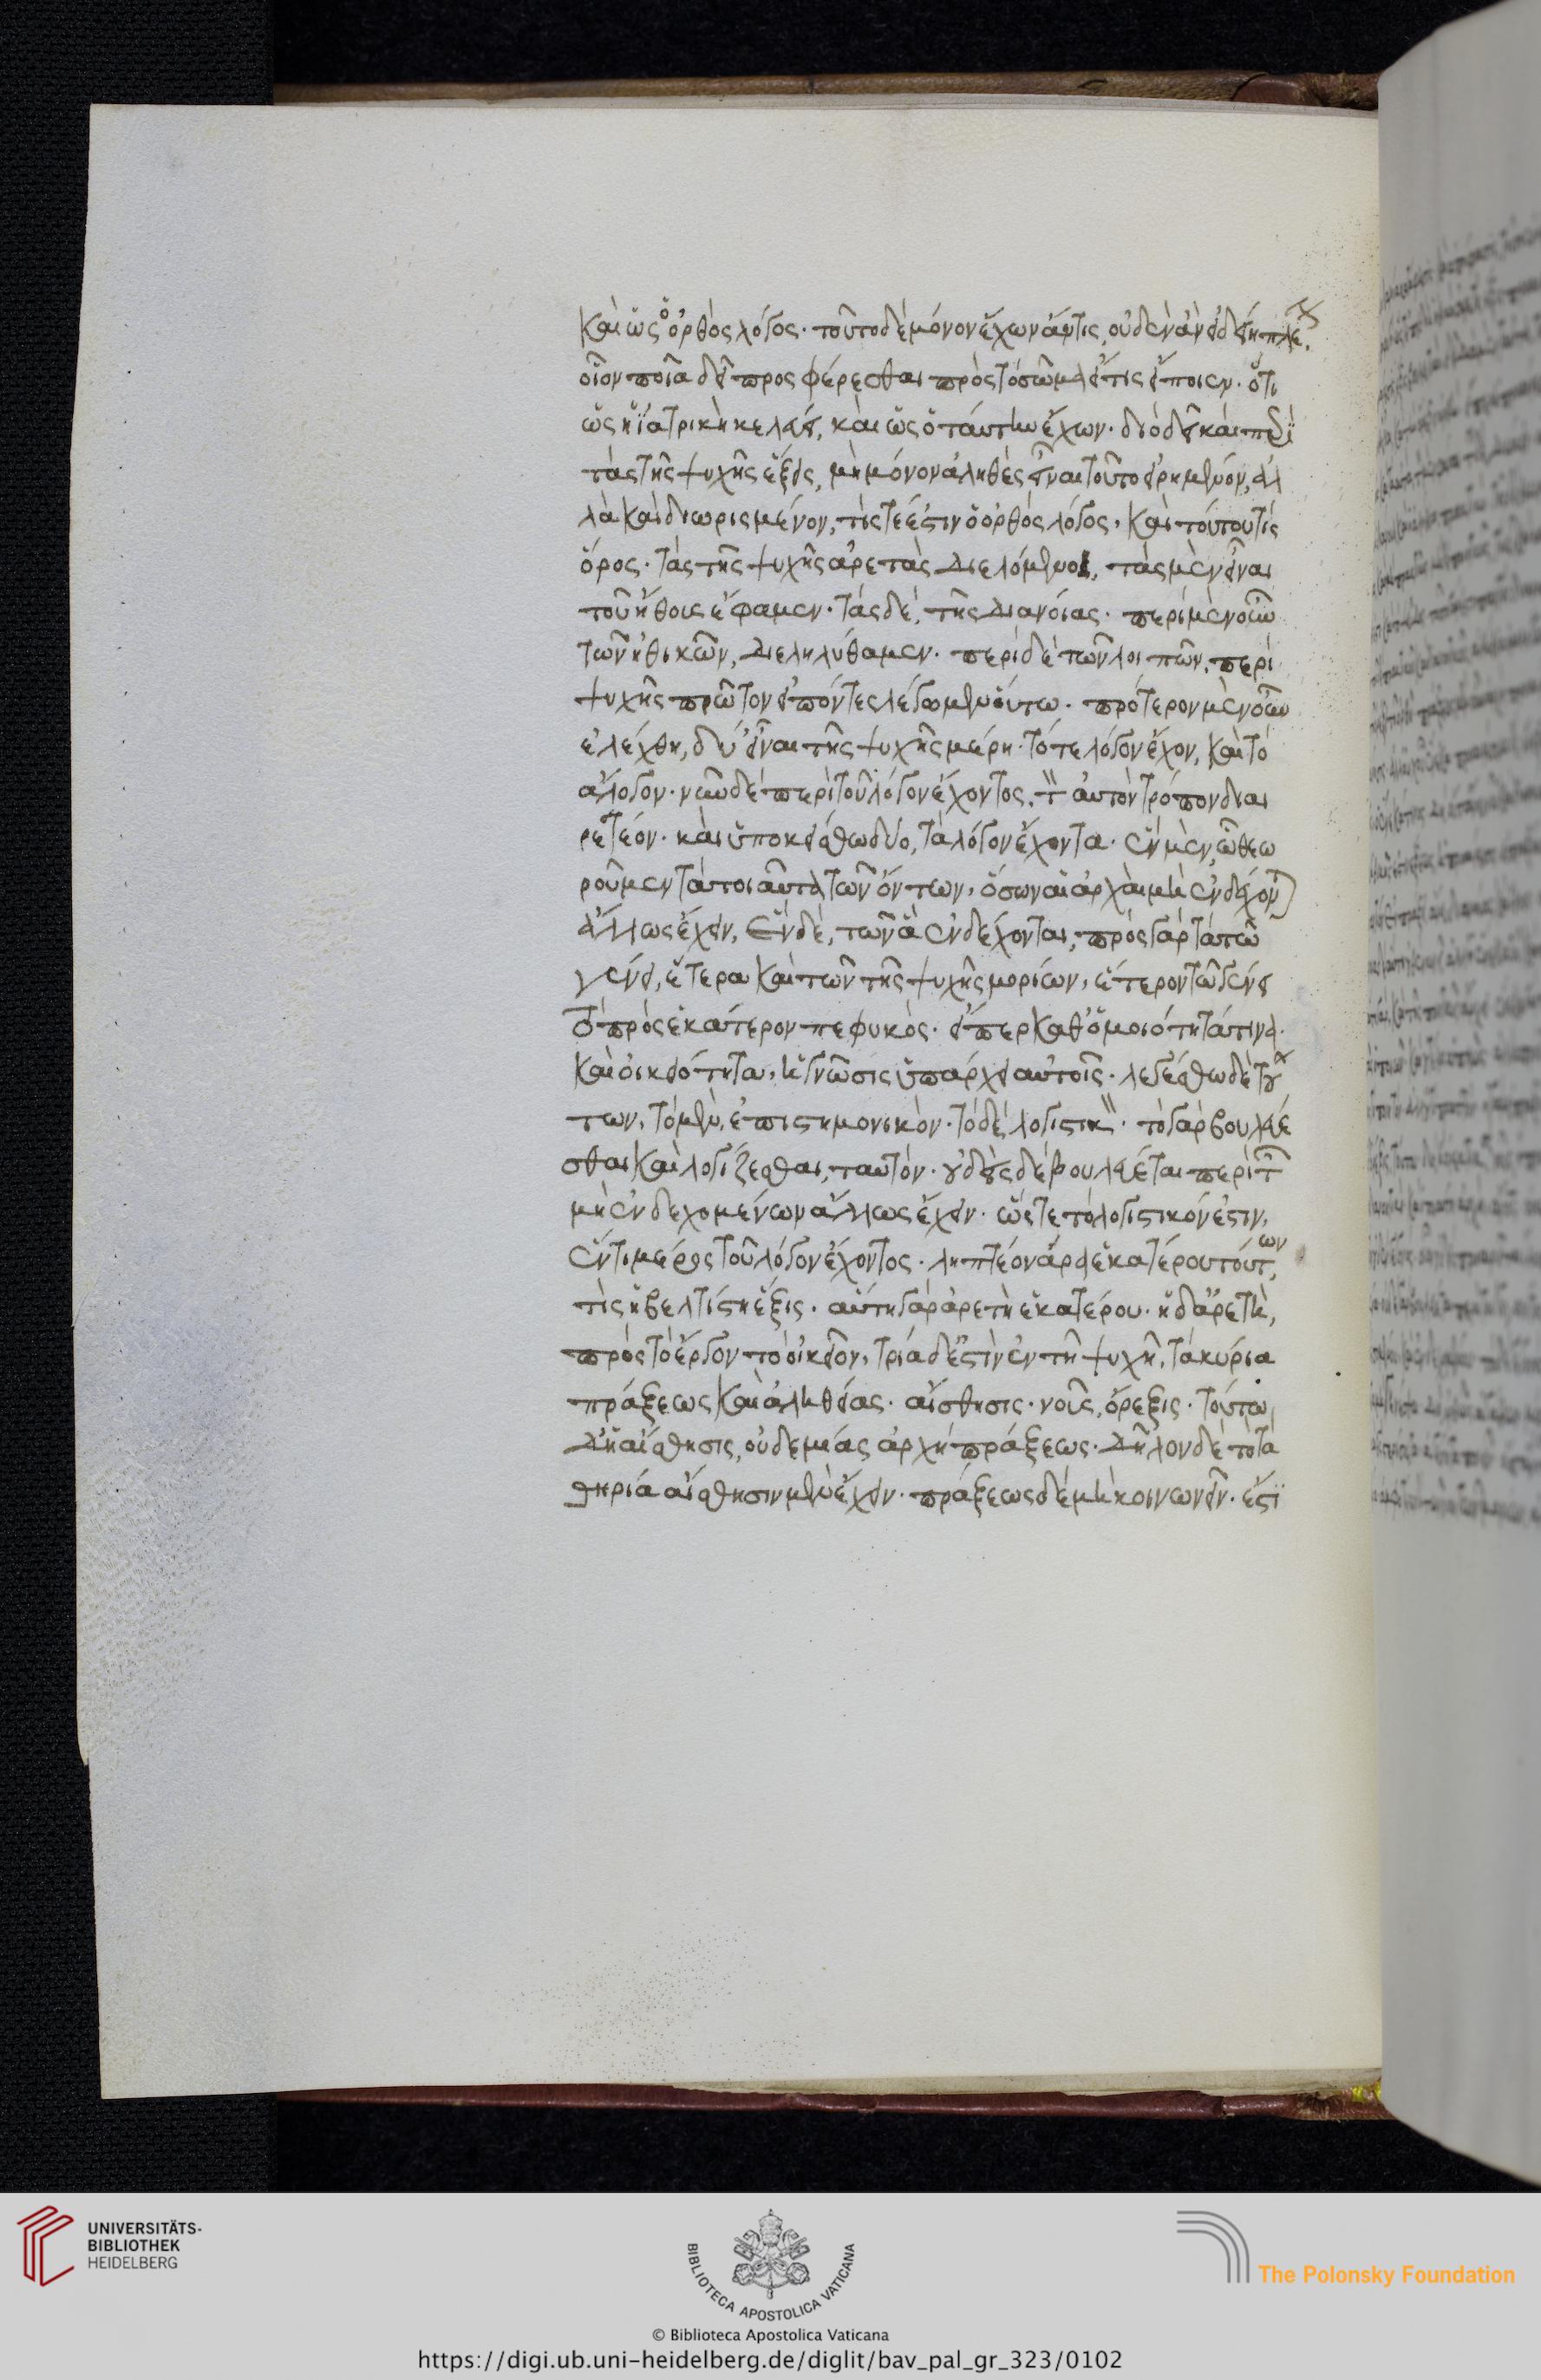 καὶ ὡς ὁ ὀρθὸς λόγος· τοῦτο δὲ μόνον ἔχων ἄν τις, οὐδὲν ἂν εἰδείη πλέ
οἷον ποῖα δεῖ προσφέρεσθαι πρὸς τὸ σῶμα εἴ τις εἴποιεν· ὅτι
ὡς ἡ ἰατρικὴ κελεύει, καὶ ὡς ὁ ταύτην ἔχων· διὸ δεῖ καὶ περὶ
τὰς τῆς ψυχῆς ἕξεις, μὴ μόνον ἀληθὲς εἶναι τοῦτο εἰρημένον, ἀλ
λὰ καὶ διωρισμένον, τίς τέ ἐστιν ὁ ὀρθὸς λόγος, καὶ τούτου τίς
ὅρος· τὰς τῆς ψυχῆς ἀρετὰς διελόμενοι, τὰς μὲν εἶναι
τοῦ ἤθους ἔφαμεν· τὰς δὲ, τῆς διανοίας· περὶ μὲν οὖν
τῶν ἠθικῶν, διεληλύθαμεν· περὶ δὲ τῶν λοιπῶν, περὶ
ψυχῆς πρῶτον εἰπόντες λέγομεν οὕτω· πρότερον μὲν οὖν
ἐλέχθη, δύ' εἶναι τῆς ψυχῆς μέρη· τό τε λόγον ἔχον, καὶ τὸ
ἄλογον· νῦν δὲ περὶ τοῦ λόγον ἔχοντος, τὸν αὐτὸν τρόπον διαι
ρετέον· καὶ ὑποκείσθω δύο, τὰ λόγον ἔχοντα· ἓν μὲν, ᾧ θεω
ροῦμεν τὰ τοιαῦτα τῶν ὄντων, ὅσων αἱ ἀρχαὶ μὴ ἐνδέχονται
ἄλλως ἔχειν, ἓν δὲ, τῶν ἃ ἐνδέχονται, πρὸς γὰρ τὰ τῷ
γένει, ἕτερα καὶ τῶν τῆς ψυχῆς μορίων, ἕτερον τῷ γένει
τὸ πρὸς ἑκάτερον πεφυκὸς· εἴπερ καθ' ὁμοιότητά τινα·
καὶ οἰκειότητα, ἡ γνῶσις ὑπάρχει αὐτοῖς· λεγέσθω δὲ τού
των, τὸ μὲν, ἐπιστημονικὸν· τὸ δὲ λογιστικὸν· τὸ γὰρ βουλεύε
σθαι καὶ λογίζεσθαι, ταυτόν· οὐδεὶς δὲ βουλεύεται περὶ τῶν
μὴ ἐνδεχομένων ἄλλως ἔχειν· ὥστε τὸ λογιστικόν ἐστιν,
ἕν τι μέρος τοῦ λόγον ἔχοντος· ληπτέον ἄρα ἑκατέρου τούτων,
τίς ἡ βελτίστη ἕξις· αὕτη γὰρ ἀρετὴ ἑκατέρου· ἡ δ' ἀρετὴ,
πρὸς τὸ ἔργον τὸ οἰκεῖον, τρία δέ ἐστιν ἐν τῇ ψυχῇ, τὰ κύρια
πράξεως καὶ ἀληθείας· αἴσθησις· νοῦς, ὄρεξις· τούτων
δ' ἡ αἴσθησις, οὐδεμιᾶς ἀρχὴ πράξεως· δῆλον δὲ τὸ τὰ
θηρία αἴσθησιν μὲν ἔχειν· πράξεως δὲ μὴ κοινωνεῖν· ἔστι
UNIVERSITÄTS-
BIBLIOTHEK
HEIDELBERG
BIBLIOTECA APOSTOLICA VATICANA
The Polonsky Foundation
© Biblioteca Apostolica Vaticana
https://digi.ub.uni-heidelberg.de/diglit/bav_pal_gr_323/0102